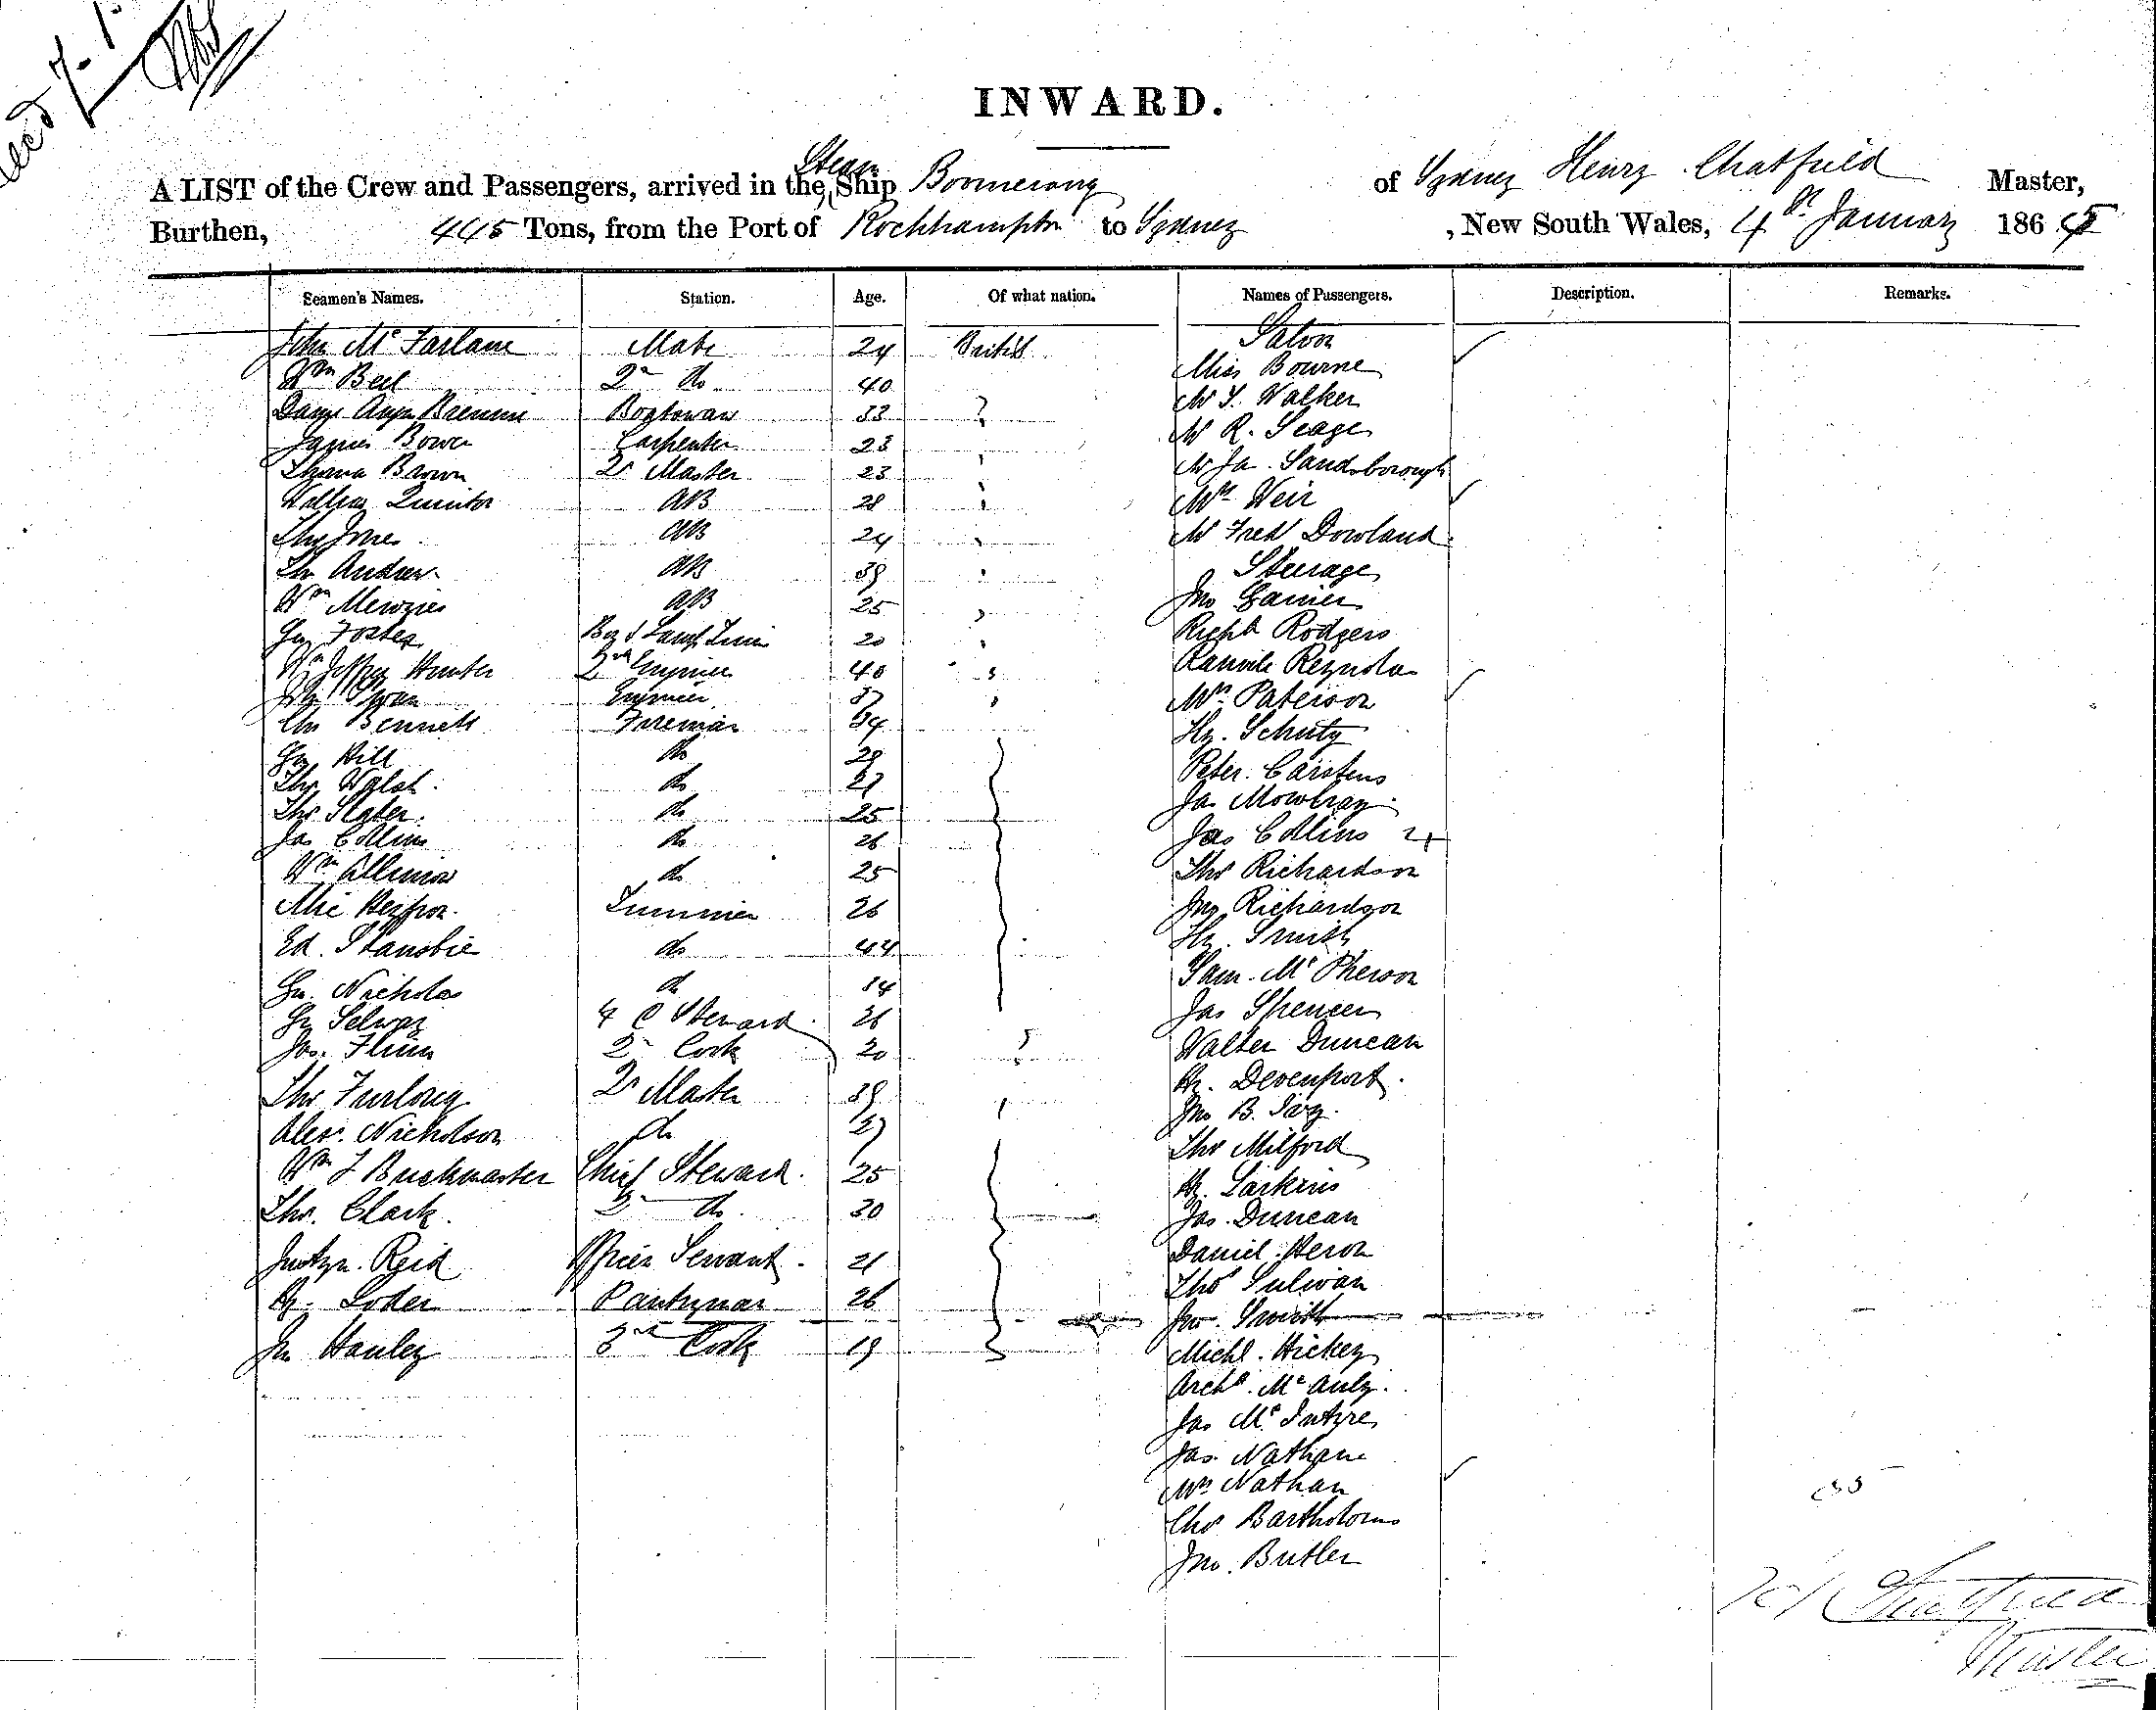 INWARD.
A LIST of the Crew and Passengers, arrived in the Steam Ship Boomerang of Sydney Henry Chatfield Master,
Burthen, 445 Tons, from the Port of Rockhampton to Sydney, New South Wales, 4th January 1865
Seamen's Names. Station. Age. Of what nation. Names of Passengers. Description. Remarks.
John McFarlane Mate 24 British Saloon
Wm Bell 2nd do 40 Miss Bourne
Boatswain 33 Mr Walker
James Bower Carpenter 23 Mr R.
Brown Qr Master 23 Mr Ja. Sandsborough
William AB 28 Mrs Weir
Jones AB 24 Mr Fred Dowland
Andrew AB 39 Steerage
Wm Menzies AB 25 Jno
Foster 20 Richd Rodgers
Jeffrey Hunter 2nd Engineer 40 Reynolds
John Swan Engineer 37 Mrs Paterson
Chs Bennett Fireman 34 Hy. Schutz
Hill do 29 Peter Carstens
Thos Walsh do 27 Ja Mowbray
Thos Slater do 25 Jas Collins
Jas Collins do 26 Thos Richardson
Wm do 25 Jno Richardson
Trimmer 26 Hy. Smith
Ed. Stansbie do 44 Sam. McPherson
Nicholas do Jas Spencer
Selway Steward 26 Walter Duncan
Jas. Flinn 2nd Cook 20 Hy. Devenport.
Thos Furlong Qr Master 39 Jno B.
Alex. Nicholson do 27 Thos Milford
Wm J Buckmaster Chief Steward. 25 Hy. Larkins
Thos. Clark. 2nd do. 20 Jas. Duncan
Reid Servant. 21 Daniel Heron
Pantryman 26 Thos Sulivan
Jno. Smith
Jn Hanley 3rd Cook 19 Michl. Hickey
Archd. McAuly.
Jas McIntyre
Jas. Nathan
Mrs Nathan
Chs Bartholomew
Jno. Butler
Chatfield
Master